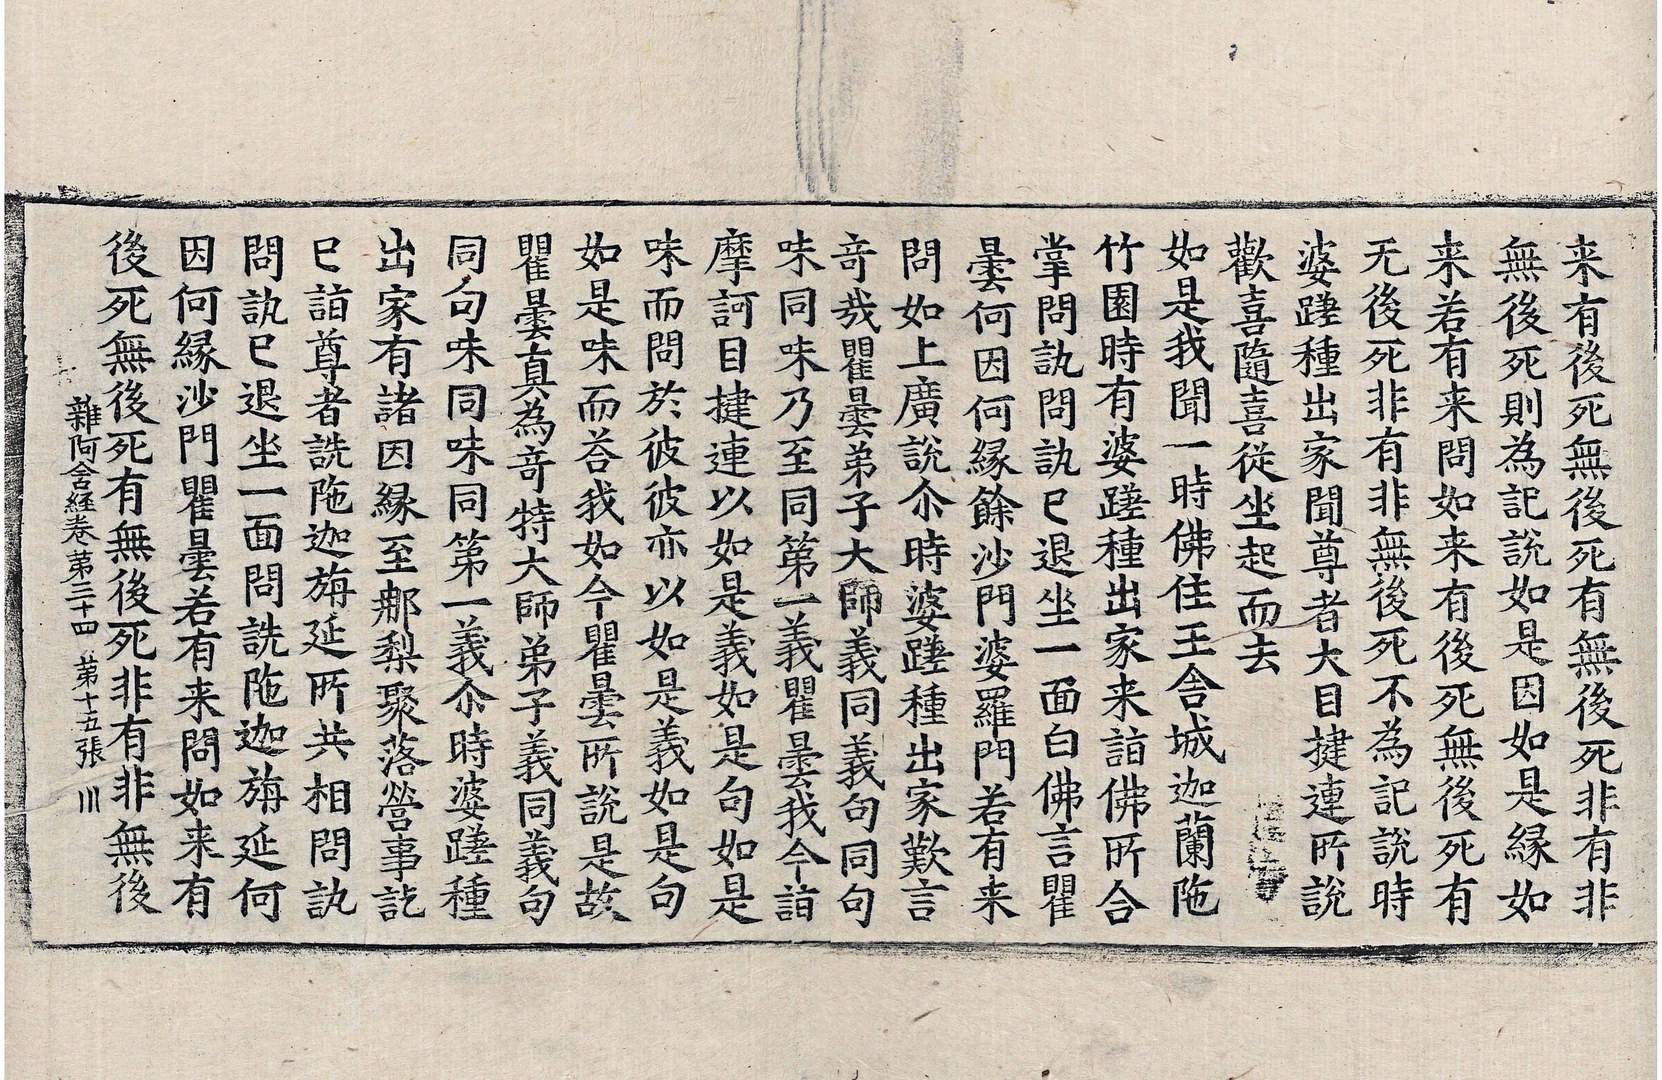 来有後死無後死有無後死非有非
無後死則為記說如是因如是縁如
来若有来問如来有後死無後死有
无後死非有非無後死不為記說時
婆蹉種出家聞尊者大目揵連所說
歡喜隨喜從坐起而去
如是我聞一時佛住王舎城迦蘭陁
竹園時有婆蹉種出家来詣佛所合
掌問訊問訊已退坐一面白佛言瞿
曇何因何縁餘沙門婆羅門若有来
問如上廣說尒時婆蹉種出家歎言
竒㢤瞿曇弟子大師義同義句同句
味同味乃至同第一義瞿曇我今詣
摩訶目揵連以如是義如是句如是
味而問於彼彼亦以如是義如是句
如是味而荅我如今瞿曇所說是故
瞿曇真為竒特大師弟子義同義句
同句味同味同第一義尒時婆蹉種
出家有諸因縁至郍梨聚落營事訖
已詣尊者詵陁迦旃延所共相問訊
問訊已退坐一面問詵陁迦旃延何
因何縁沙門瞿曇若有来問如来有
後死無後死有無後死非有非無後
雜阿含経卷第三十四 第十五張 川